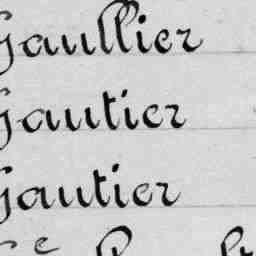 Gaullier
Gautier
Gautier